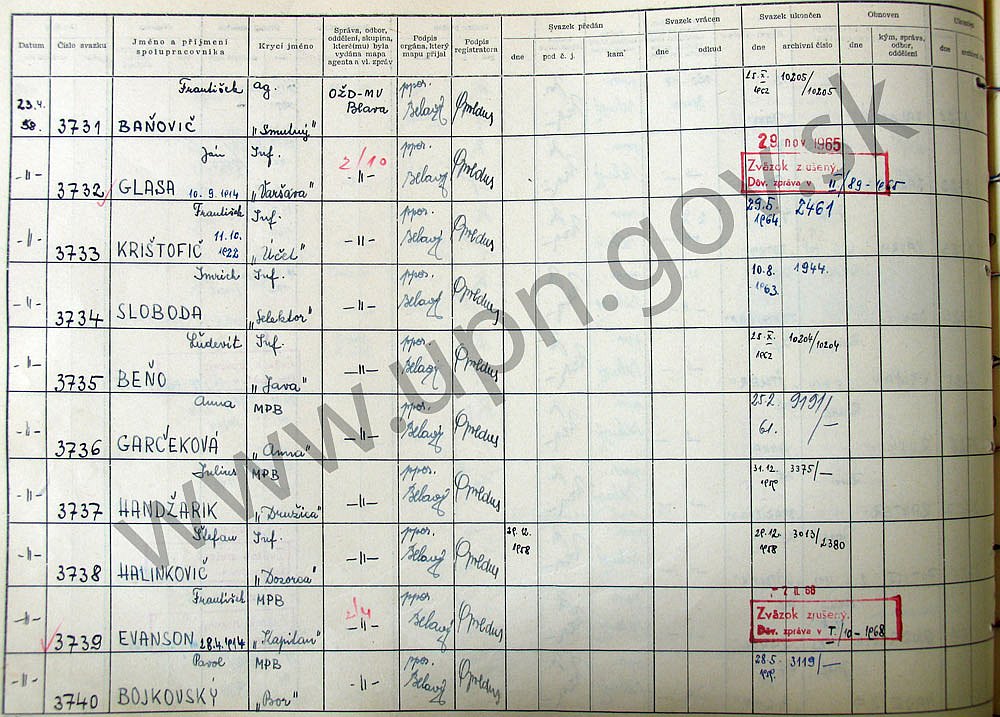 Datum
Číslo svazku
Jméno a příjmení spolupracovníka
Krycí jméno
Správa, odbor, oddělení, skupina, kterému byla vydána mapa agenta a vl. zpráv
Podpis orgána, který mapu přijal
Podpis registratora
Svazek předán
dne
pod č. j.
kam
Svazek vrácen
dne
odkud
Svazek ukončen
dne
archivní číslo
Obnoven
dne
kým, správa, odbor, oddělení
23.4. 58. 3731 František BAŇOVIČ ag. "Smutný" OŽD-MV Blava ppor. Belavý 25.X. 1962 10205/10205
-"- 3732 Ján GLASA 10.9.1914 Inf. "Varšava" 2/10 -"- ppor. Belavý
29 nov 1965
Zväzok zrušený.
Dův. zpráva v II/89-1965
-"- 3733 František KRIŠTOFIČ 11.10. 1922 Inf. "Účet" -"- ppor. Belavý 29.5. 1964. 2461
-"- 3734 Imrich SLOBODA Inf. "Selektor" -"- ppor. Belavý 10.8. 1963. 1944.
-"- 3735 Ľudevít BEŇO Inf. "Java" -"- ppor. Belavý 25.X. 1962 10204/10204
-"- 3736 Anna GARČEKOVÁ MPB "Anna" -"- ppor. Belavý 25.2. 61. 9191/-
-"- 3737 Julius HANDŽARIK MPB "Družica" -"- ppor. Belavý 31.12. 3375/-
-"- 3738 Štefan HALINKOVIČ Inf. "Dozorca" -"- ppor. Belavý 29.12. 1958 29.12. 1958 3013/2380
-"- 3739 František EVANSON 28.4.1914 MPB "Kapitan" 2/4 -"- ppor. Belavý
- 7. II. 68
Zväzok zrušený.
Dův. zpráva v T./10-1968
-"- 3740 Pavol BOJKOVSKÝ MPB "Bor" -"- ppor. Belavý 28.5. 3119/-
www.upn.gov.sk